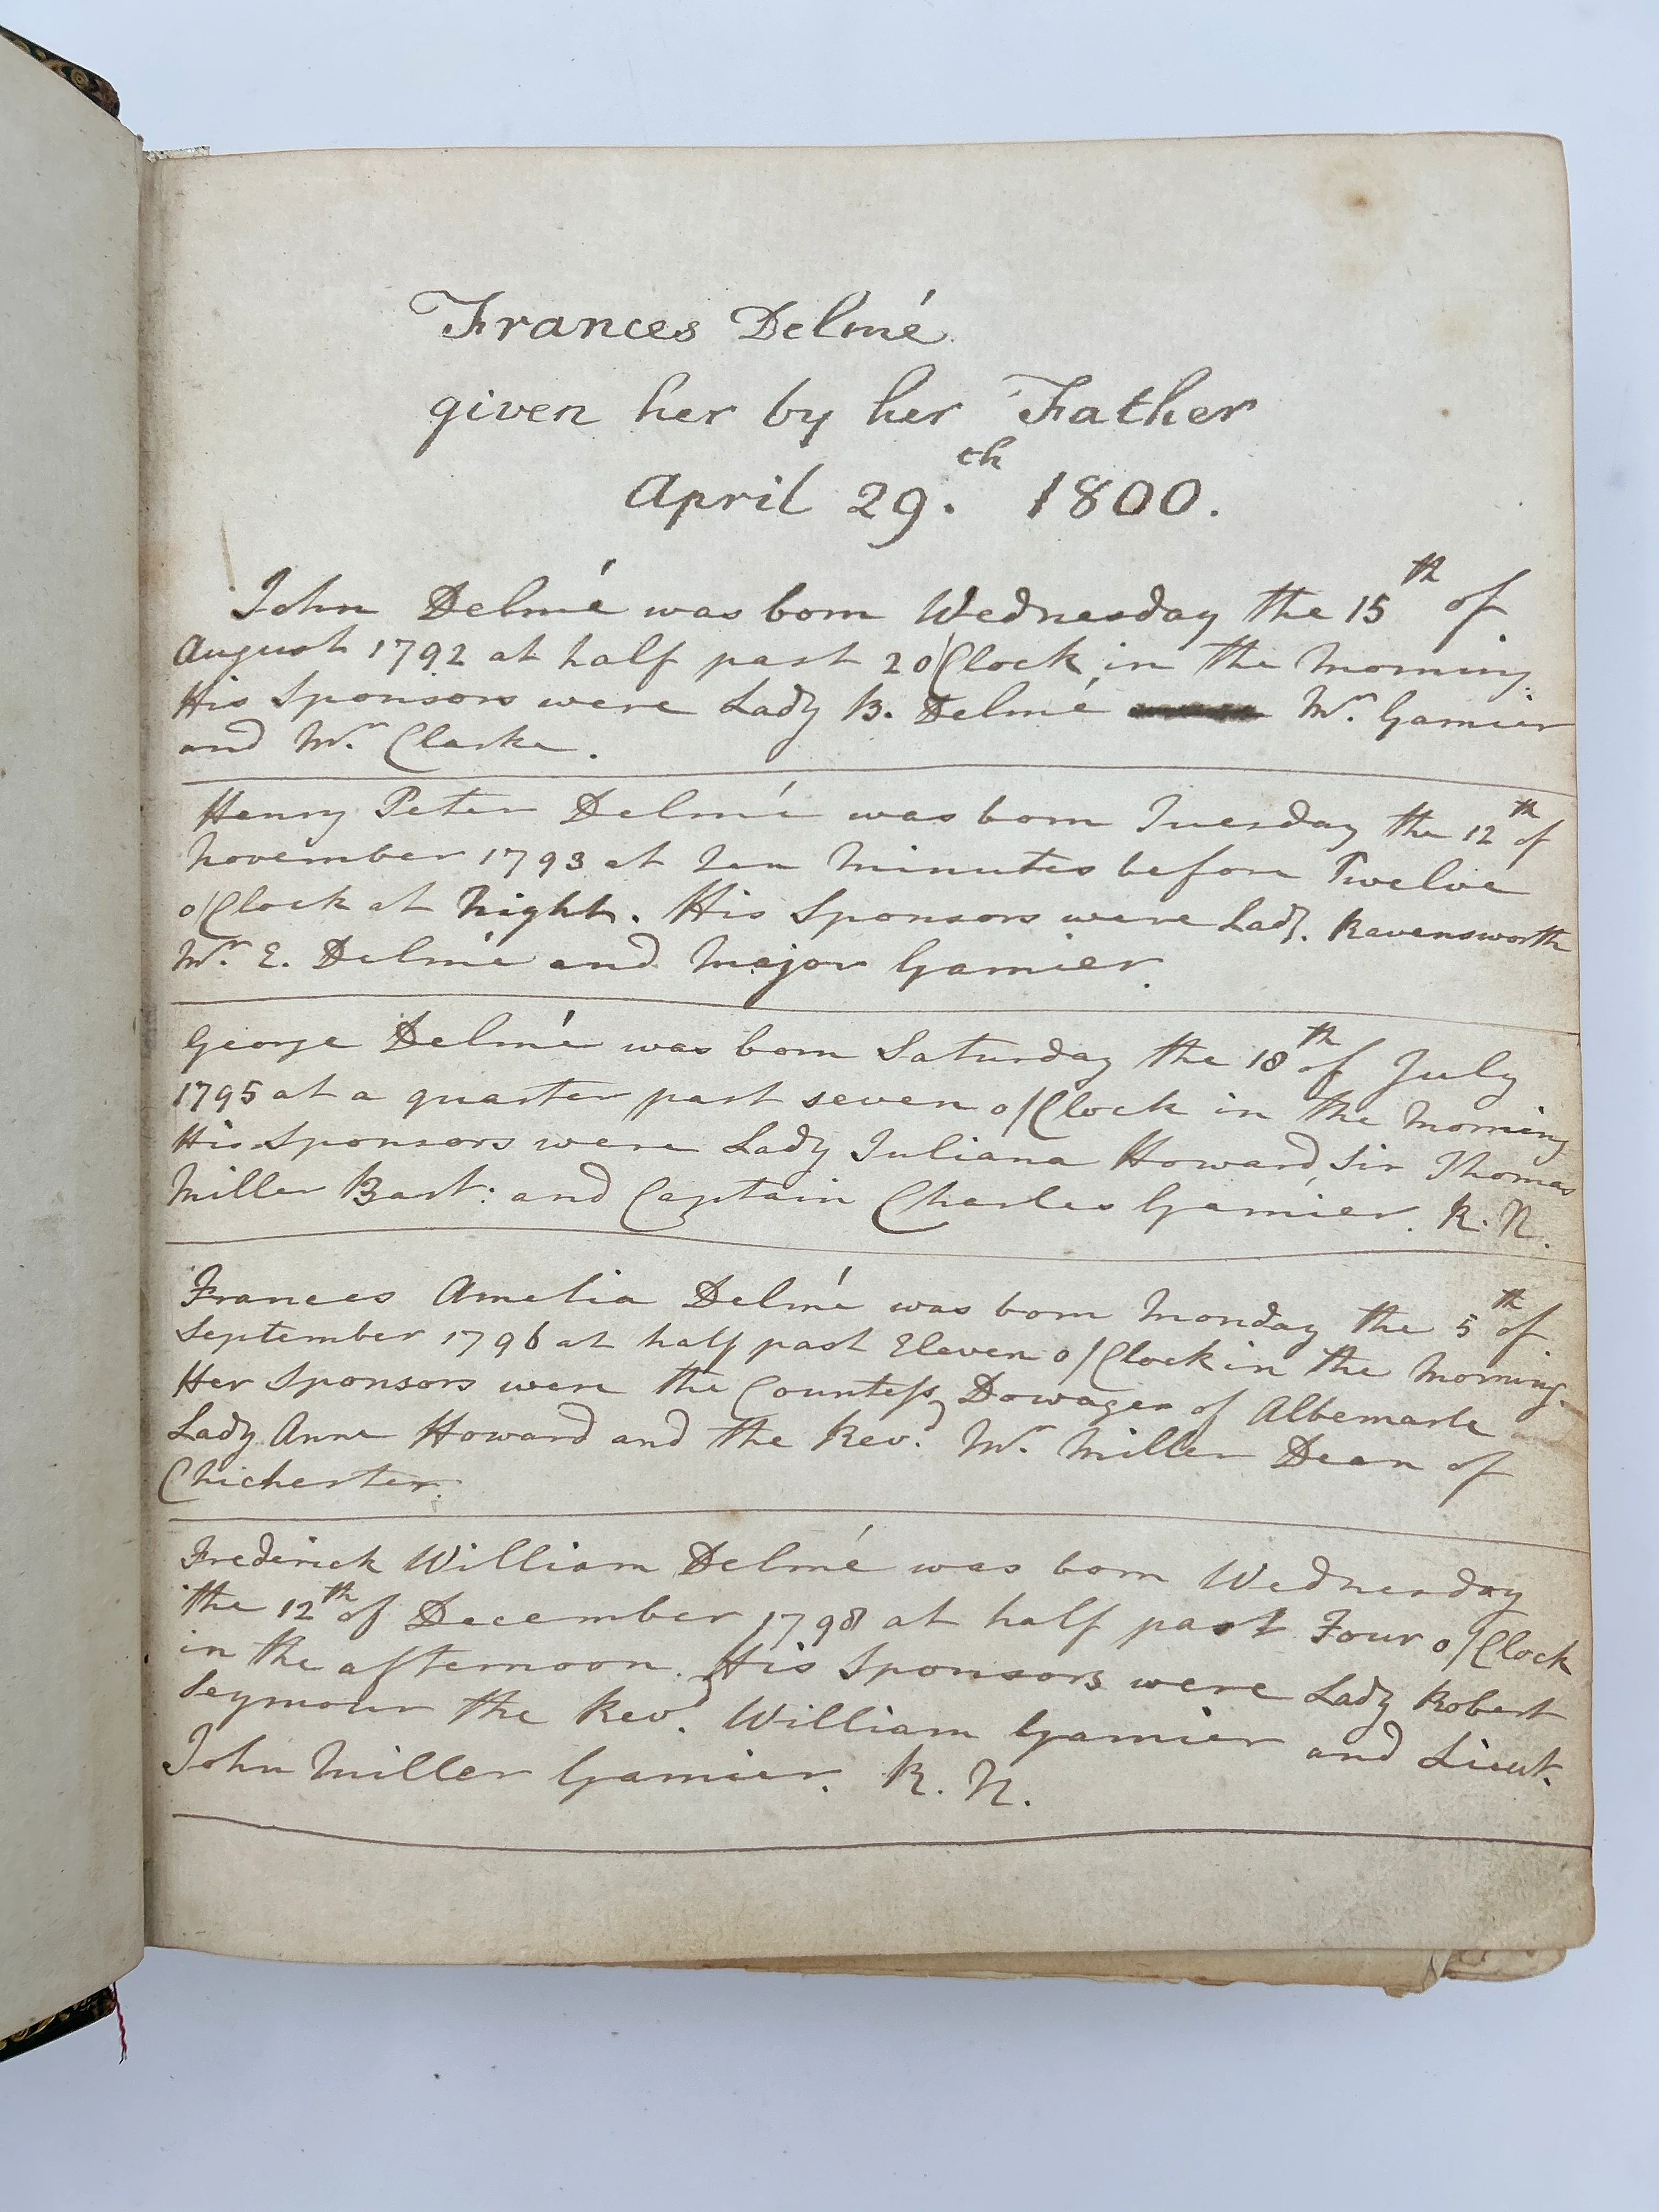 Frances Delmé
given her by her Father
April 29.th 1800.
John Delmé was born Wednesday the 15th of
August 1792 at half past 2 o'Clock in the Morning.
His Sponsors were Lady B. Delmé Mr. Garnier
and Mr. Clarke.
Henry Peter Delmé was born Tuesday the 12th of
November 1793 at ten Minutes before Twelve
o'Clock at Night. His Sponsors were Lady Ravensworth
Mr. E. Delmé and Major Garnier.
George Delmé was born Saturday the 18th of July
1795 at a quarter past seven o'Clock in the Morning
His Sponsors were Lady Juliana Howard, Sir Thomas
Miller Bart: and Captain Charles Garnier. R. N.
Frances Amelia Delmé was born Monday the 5th of
September 1796 at half past Eleven o'Clock in the Morning.
Her Sponsors were the Countess Dowager of Albemarle
Lady Anne Howard and the Revd. Mr. Miller Dean of
Chichester.
Frederick William Delmé was born Wednesday
the 12th of December 1798 at half past Four o'Clock
in the afternoon. His Sponsors were Lady Robert
Seymour the Revd. William Garnier and Lieut.
John Miller Garnier. R. N.